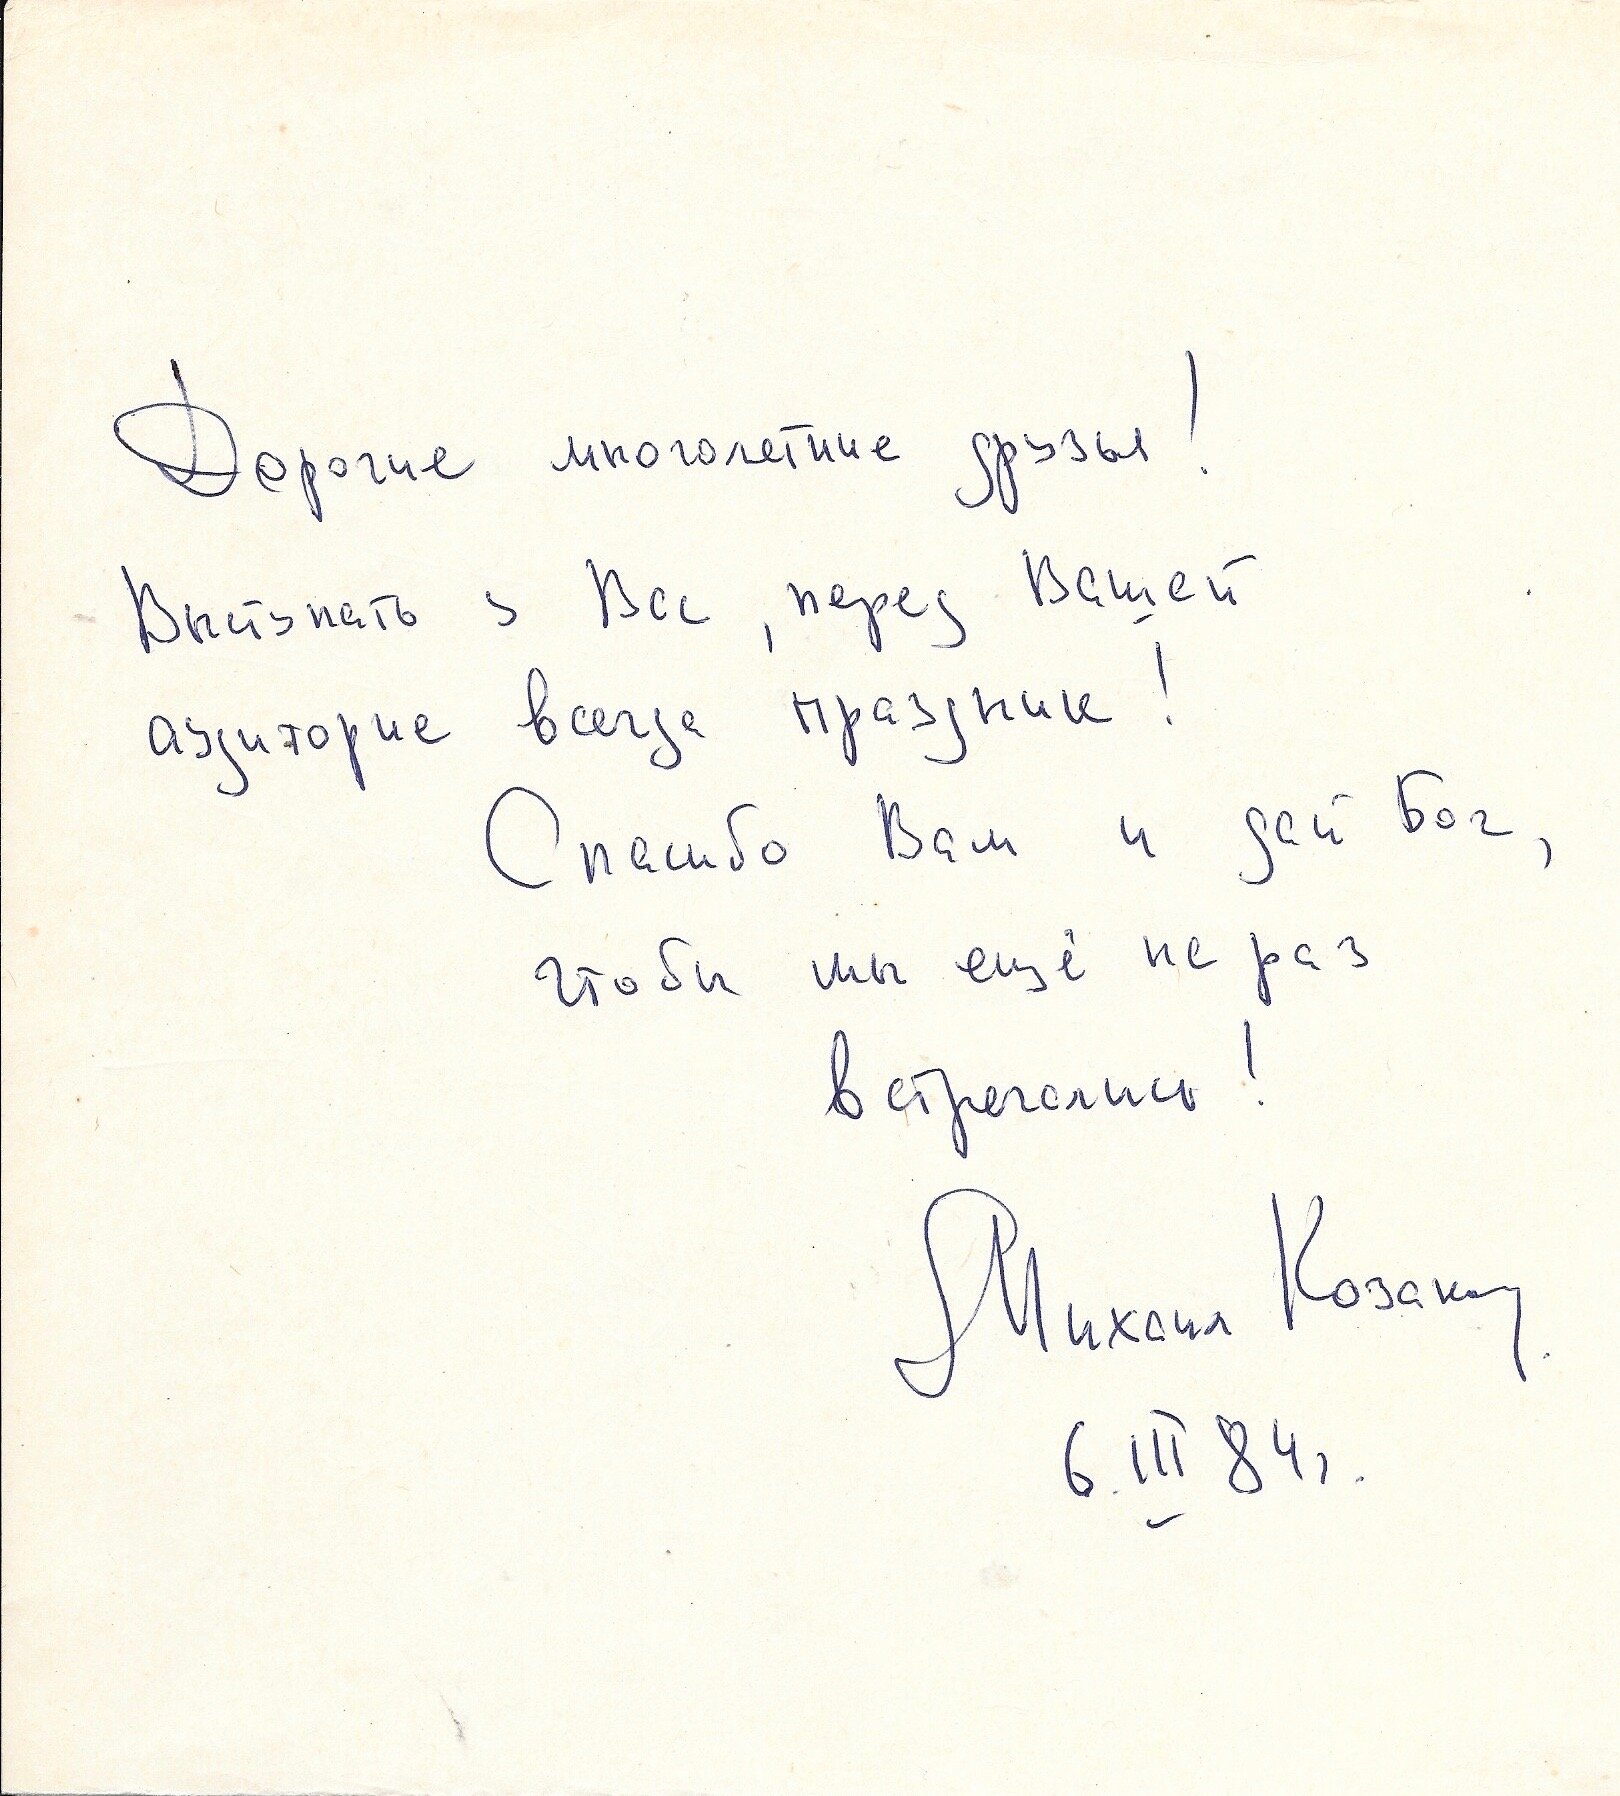 Дорогие многолетние друзья!
Выступать у Вас, перед Вашей
аудиторие всегда праздник!
Спасибо Вам и дай Бог,
чтобы мы ещё не раз
встречались!
Михаил Козаков
6.III 84г.